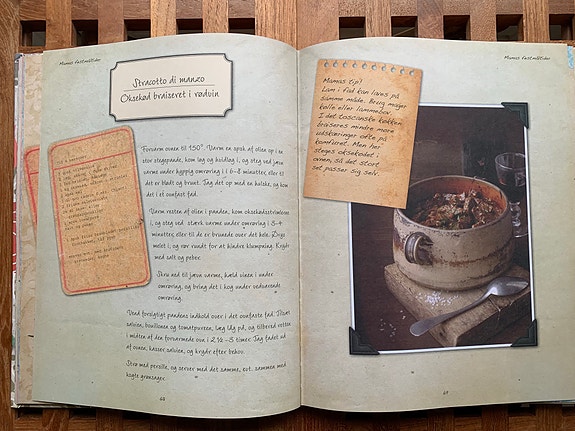 Mamas festmåltider
Stracotto di manzo
Oksekød braiseret i rødvin
Forvarm ovnen til 150°. Varm en spsk af olien op i en
stor stegepande, kom løg og hvidløg i, og steg ved jævn
varme under hyppig omrøring i 6-8 minutter, eller til
det er blødt og brunt. Tag det op med en hulske, og kom
det i et ovnfast fad.
Varm resten af olien i panden, kom oksekødsstrimlerne
i, og steg ved stærk varme under omrøring i 3-4
minutter, eller til de er brunede over det hele. Drys
melet i, og rør rundt for at hindre klumpning. Krydr
med salt og peber.
Skru ned til jævn varme, hæld vinen i under
omrøring, og bring det i kog under vedvarende
omrøring.
Vend forsigtigt pandens indhold over i det ovnfaste fad. Tilsæt
salvien, bouillonen og tomatpureen, læg låg på, og tilbered retten
i midten af den forvarmede ovn i 2,½-3 timer. Tag fadet ud
af ovnen, kasser salvien, og krydr efter behov.
Strø med persille, og server med det samme, evt. sammen med
kogte grønsager.
48
Mamas festmåltider
Mamas tip!
Lam i fad kan laves på
samme måde. Brug mager
kølle eller lammebov.
I det toscanske køkken
braiseres mindre møre
udskæringer ofte på
komfuret. Men her
steges oksekødet i
ovnen, så det stort
set passer sig selv.
49